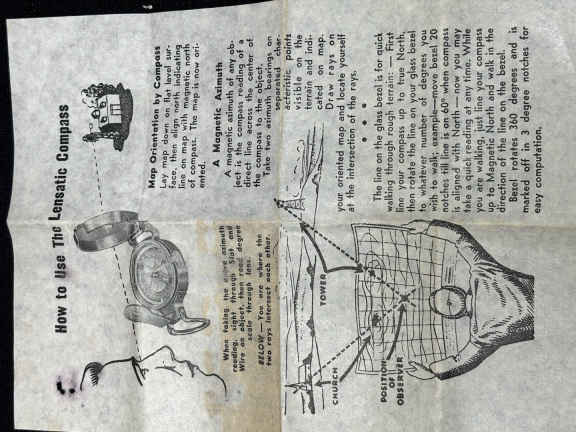 How to Use The Lensatic Compass
When taking the above azimuth
reading, sight through Slot and
Wire on object, then read degree
scale through lens.
BELOW — You are where the
two rays intersect each other.
CHURCH
TOWER
POSITION
OF
OBSERVER
Map Orientation by Compass
Lay map down on flat level sur-
face, then align north indicating
line on map with magnetic north
of compass. The map is now ori-
ented.
A Magnetic Azimuth
A magnetic azimuth of any ob-
ject is the compass reading of a
direct line across the center of
the compass to the object.
Take two azimuth bearings on
separated char-
acteristic points
visible on the
terrain and indi-
cated on map.
Draw rays on
your oriented map and locate yourself
at the intersection of the rays.
The line on the glass bezel is for quick
walking through rough terrain: — First
line your compass up to true North,
then rotate the line on your glass bezel
to whatever number of degrees you
wish to walk, example: move bezel 20
notches till line is on 60° when compass
is aligned with North — now you may
take a quick reading at any time. While
you are walking, just line your compass
up to Magnetic North and walk in the
direction of the line on the bezel.
Bezel rotates 360 degrees and is
marked off in 3 degree notches for
easy computation.